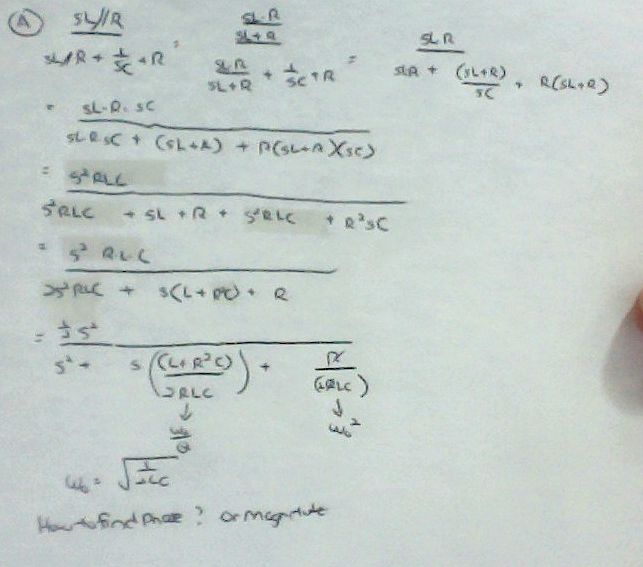 (A) sL//R / (sL//R + 1/sC + R) = (sL·R / (sL+R)) / (sL·R / (sL+R) + 1/sC + R) = sLR / (sLR + (sL+R)/sC + R(sL+R))
= sL·R·sC / (sLRsC + (sL+R) + R(sL+R)(sC))
= s²RLC / (s²RLC + sL + R + s²RLC + R²sC)
= s²RLC / (2s²RLC + s(L+R²C) + R)
= ½s² / (s² + s((L+R²C) / 2RLC) + R / (2RLC))
↓ ↓
ω₀/Q ω₀²
ω₀ = √(1/2LC)
How to find phase? or magnitude